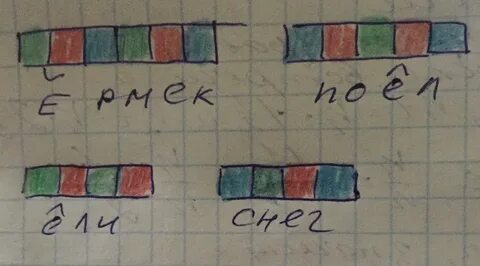 Ёрмек поёл
ёли снег